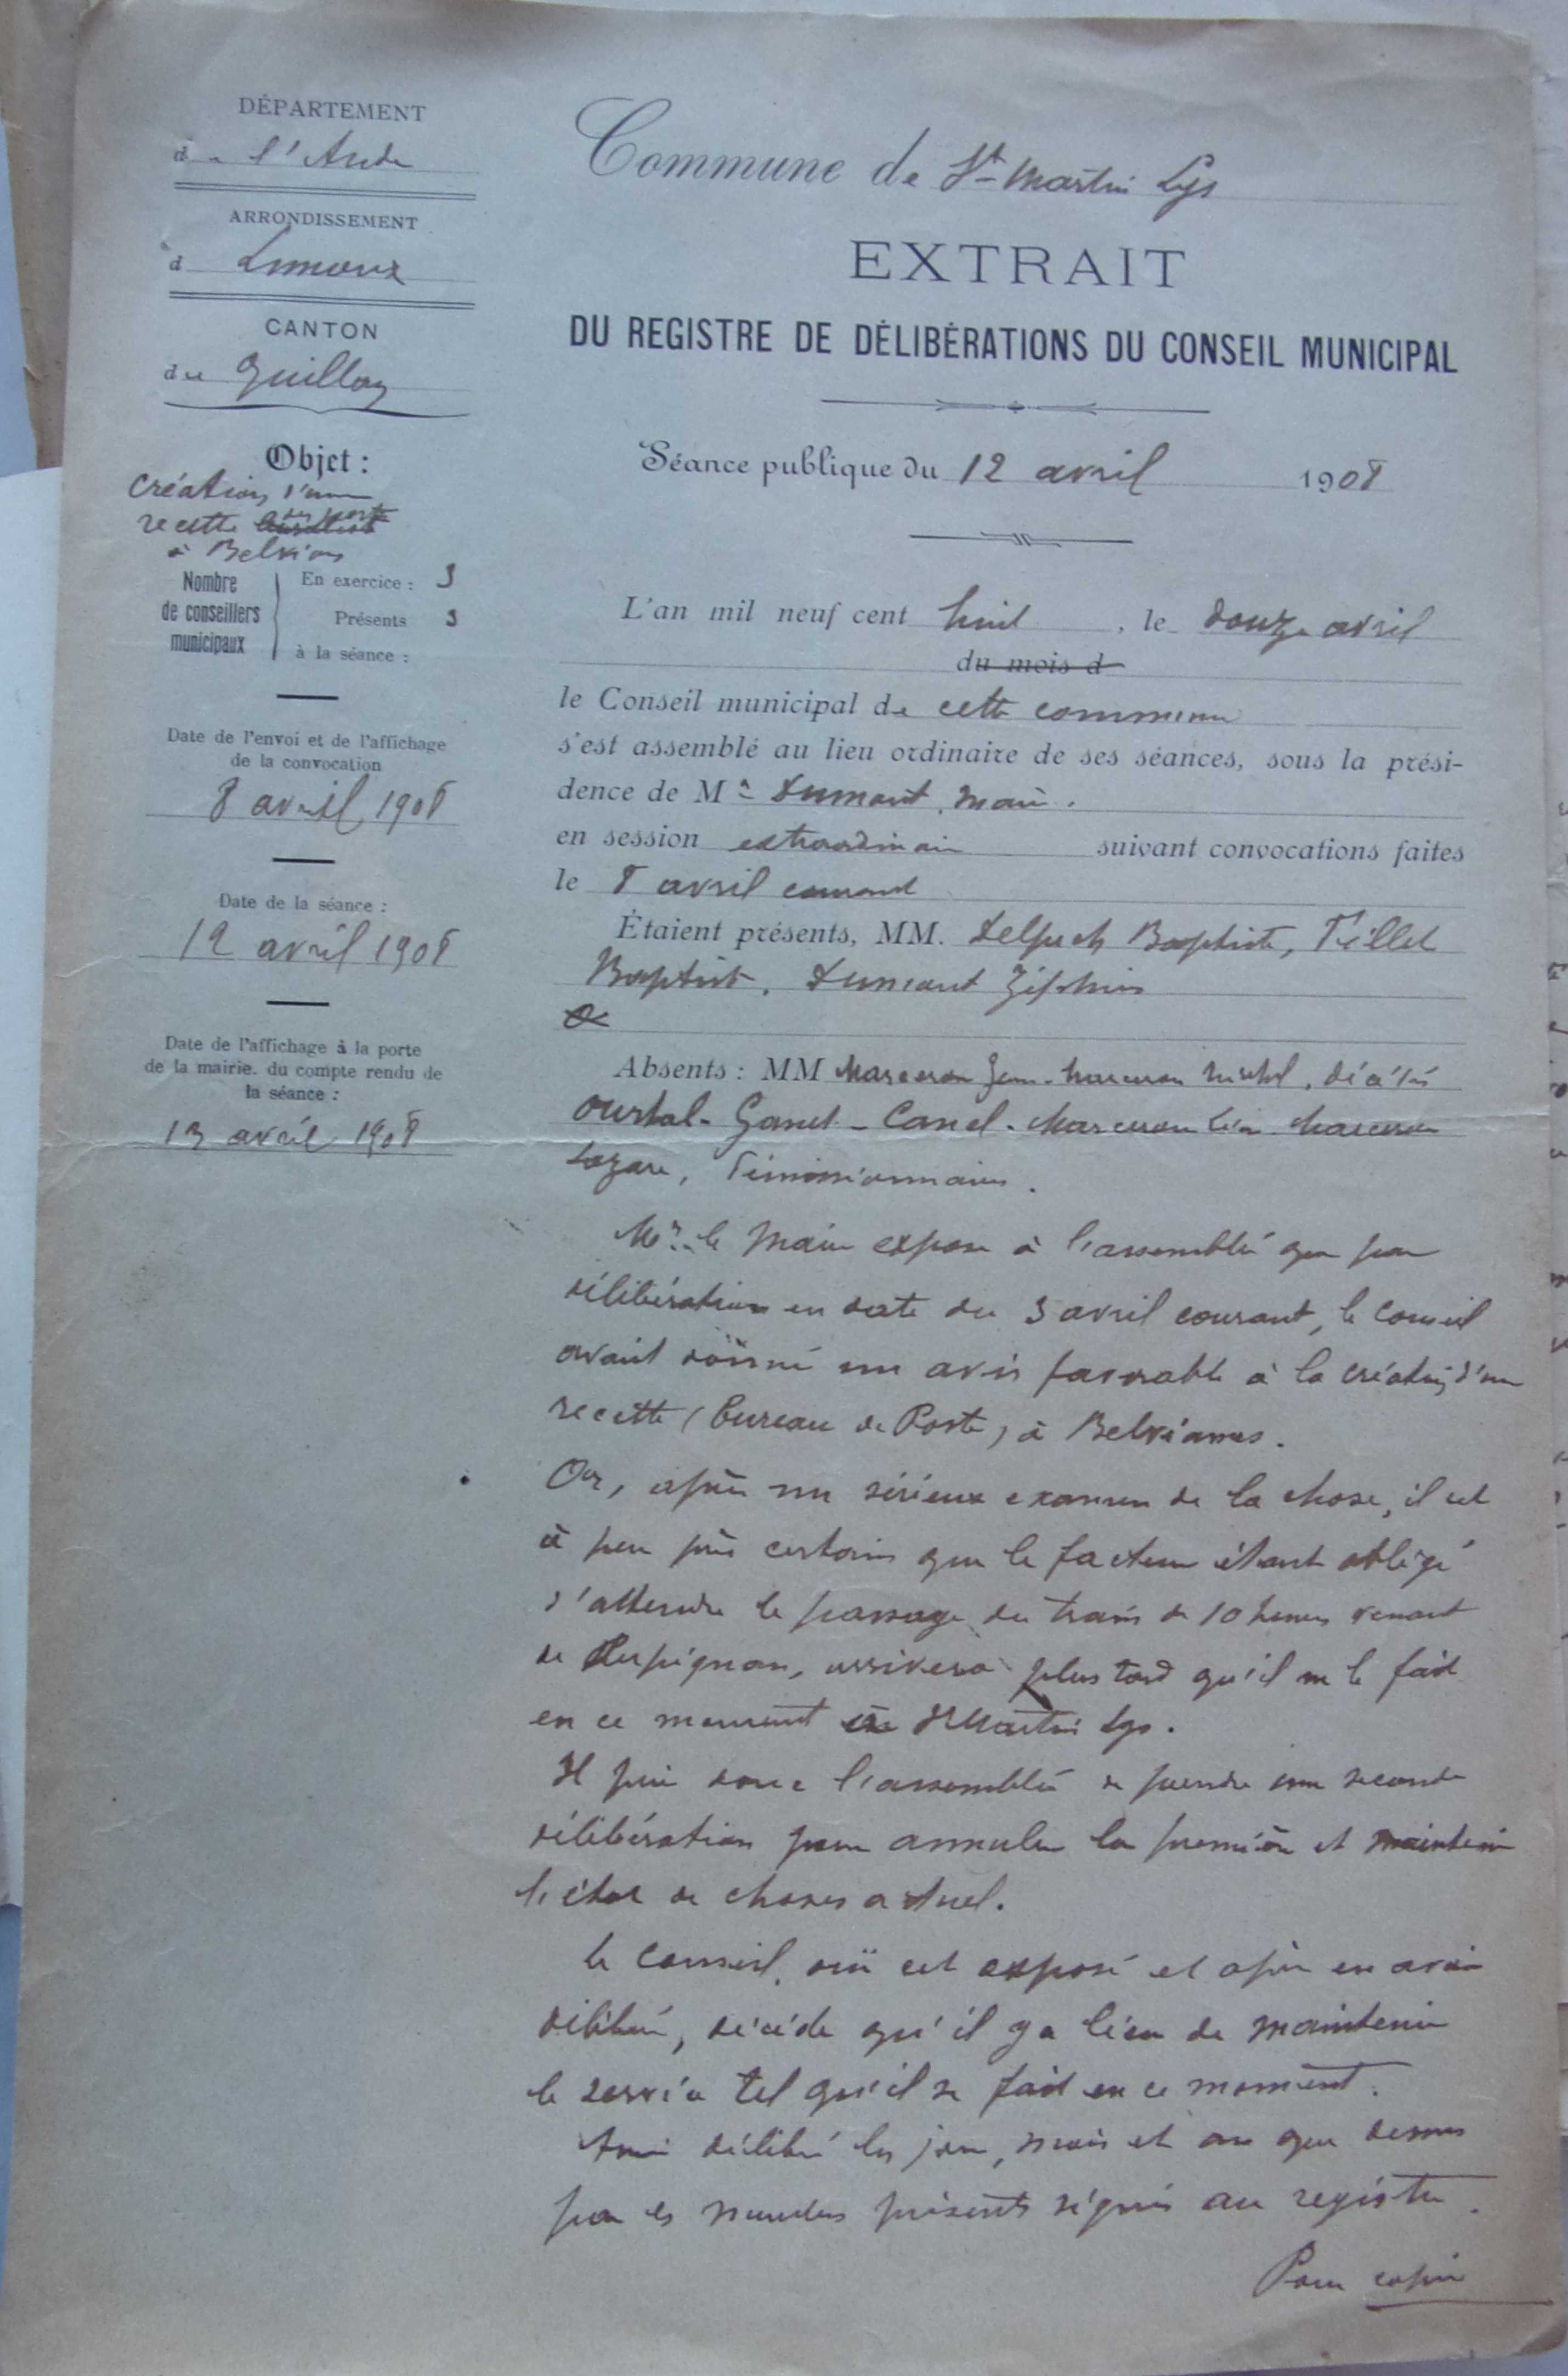 DÉPARTEMENT
de l'Aude
ARRONDISSEMENT
d Limoux
CANTON
du Quillan
Objet :
Création d'une
recette des postes
à Belvianes
Nombre
de conseillers
municipaux
En exercice : 3
Présents 3
à la séance :
Date de l'envoi et de l'affichage
de la convocation
8 avril 1908
Date de la séance :
12 avril 1908
Date de l'affichage à la porte
de la mairie. du compte rendu de
la séance :
13 avril 1908
Commune de St Martin Lys
EXTRAIT
DU REGISTRE DE DÉLIBÉRATIONS DU CONSEIL MUNICIPAL
Séance publique du 12 avril 1908
L'an mil neuf cent huit, le douze avril
du mois d
le Conseil municipal de cette commune
s'est assemblé au lieu ordinaire de ses séances, sous la prési-
dence de Mr Dumont, maire.
en session extraordinaire suivant convocations faites
le 8 avril courant
Étaient présents, MM. Delpech Baptiste, Tillet
Baptiste, Dumont Zéphirin
Absents : MM Marceron Jean - Marceron Michel, décédés
Ourtal - Ganet - Canel - Marceron Léon - Marceron
Lazare, démissionnaires.
Mr. le Maire expose à l'assemblée que par
délibération en date du 5 avril courant, le Conseil
avait donné un avis favorable à la création d'une
recette (bureau de Poste) à Belvianes.
Or, après un sérieux examen de la chose, il est
à peu près certain que le facteur étant obligé
d'attendre le passage du train de 10 heures venant
de Perpignan, arrivera plus tard qu'il ne le fait
en ce moment à St Martin Lys.
Il prie donc l'assemblée de prendre une seconde
délibération pour annuler la première et maintenir
l'état de choses actuel.
Le Conseil, ouï cet exposé et après en avoir
délibéré, décide qu'il y a lieu de maintenir
le service tel qu'il se fait en ce moment.
Ainsi délibéré les jour, mois et an que dessus
par les membres présents signés au registre.
Pour copie